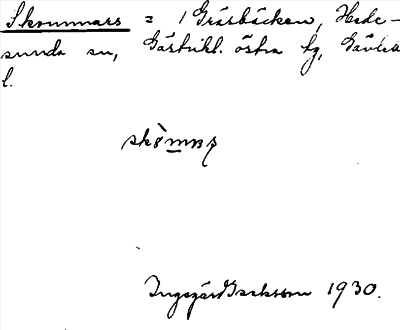 Skommars = 1 Gräsbäcken, Hede-
sunda sn, Gästrikl. östra tg, Gävleb.
l.
skòmas
Ingegärd Isaksson 1930.